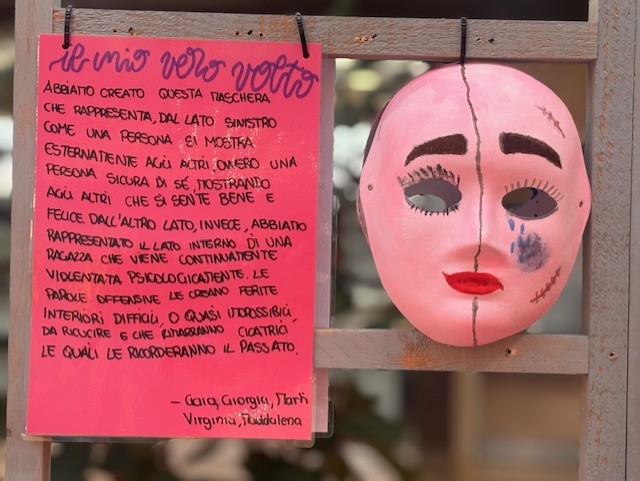 il mio vero volto
ABBIAMO CREATO QUESTA MASCHERA
CHE RAPPRESENTA, DAL LATO SINISTRO
COME UNA PERSONA SI MOSTRA
ESTERNAMENTE AGLI ALTRI, OVVERO UNA
PERSONA SICURA DI SÉ, MOSTRANDO
AGLI ALTRI CHE SI SENTE BENE E
FELICE. DALL'ALTRO LATO, INVECE, ABBIAMO
RAPPRESENTATO IL LATO INTERNO DI UNA
RAGAZZA CHE VIENE CONTINUAMENTE
VIOLENTATA PSICOLOGICAMENTE. LE
PAROLE OFFENSIVE LE CREANO FERITE
INTERIORI DIFFICILI, O QUASI IMPOSSIBILI,
DA RICUCIRE E CHE RIMARRANNO CICATRICI,
LE QUALI LE RICORDERANNO IL PASSATO.
– Gaia, Giorgia,
Virginia, Maddalena